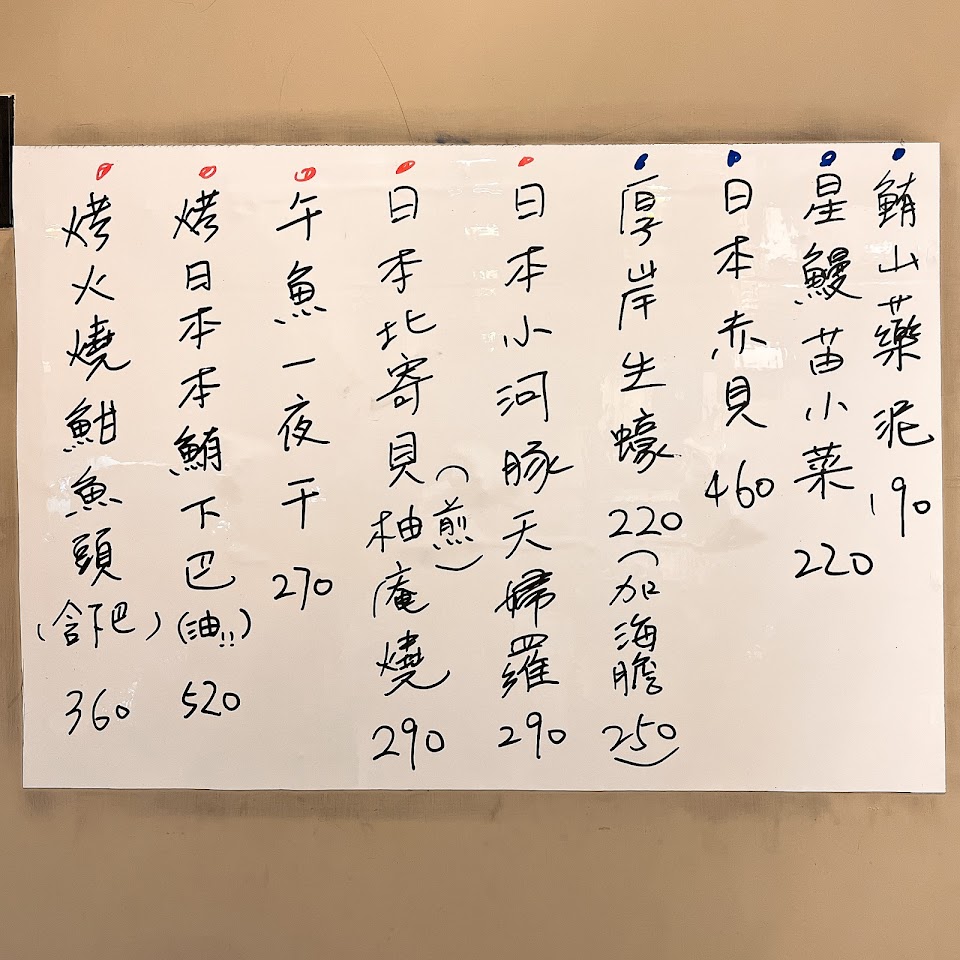 鮪山藥泥190
星鰻苗小菜220
日本赤貝460
厚岸生蠔220(加海膽250)
日本小河豚天婦羅290
日本北寄貝(煎)柚庵燒290
午魚一夜干270
烤日本本鮪下巴(油!!)520
烤火燒魽魚頭(含下巴)360